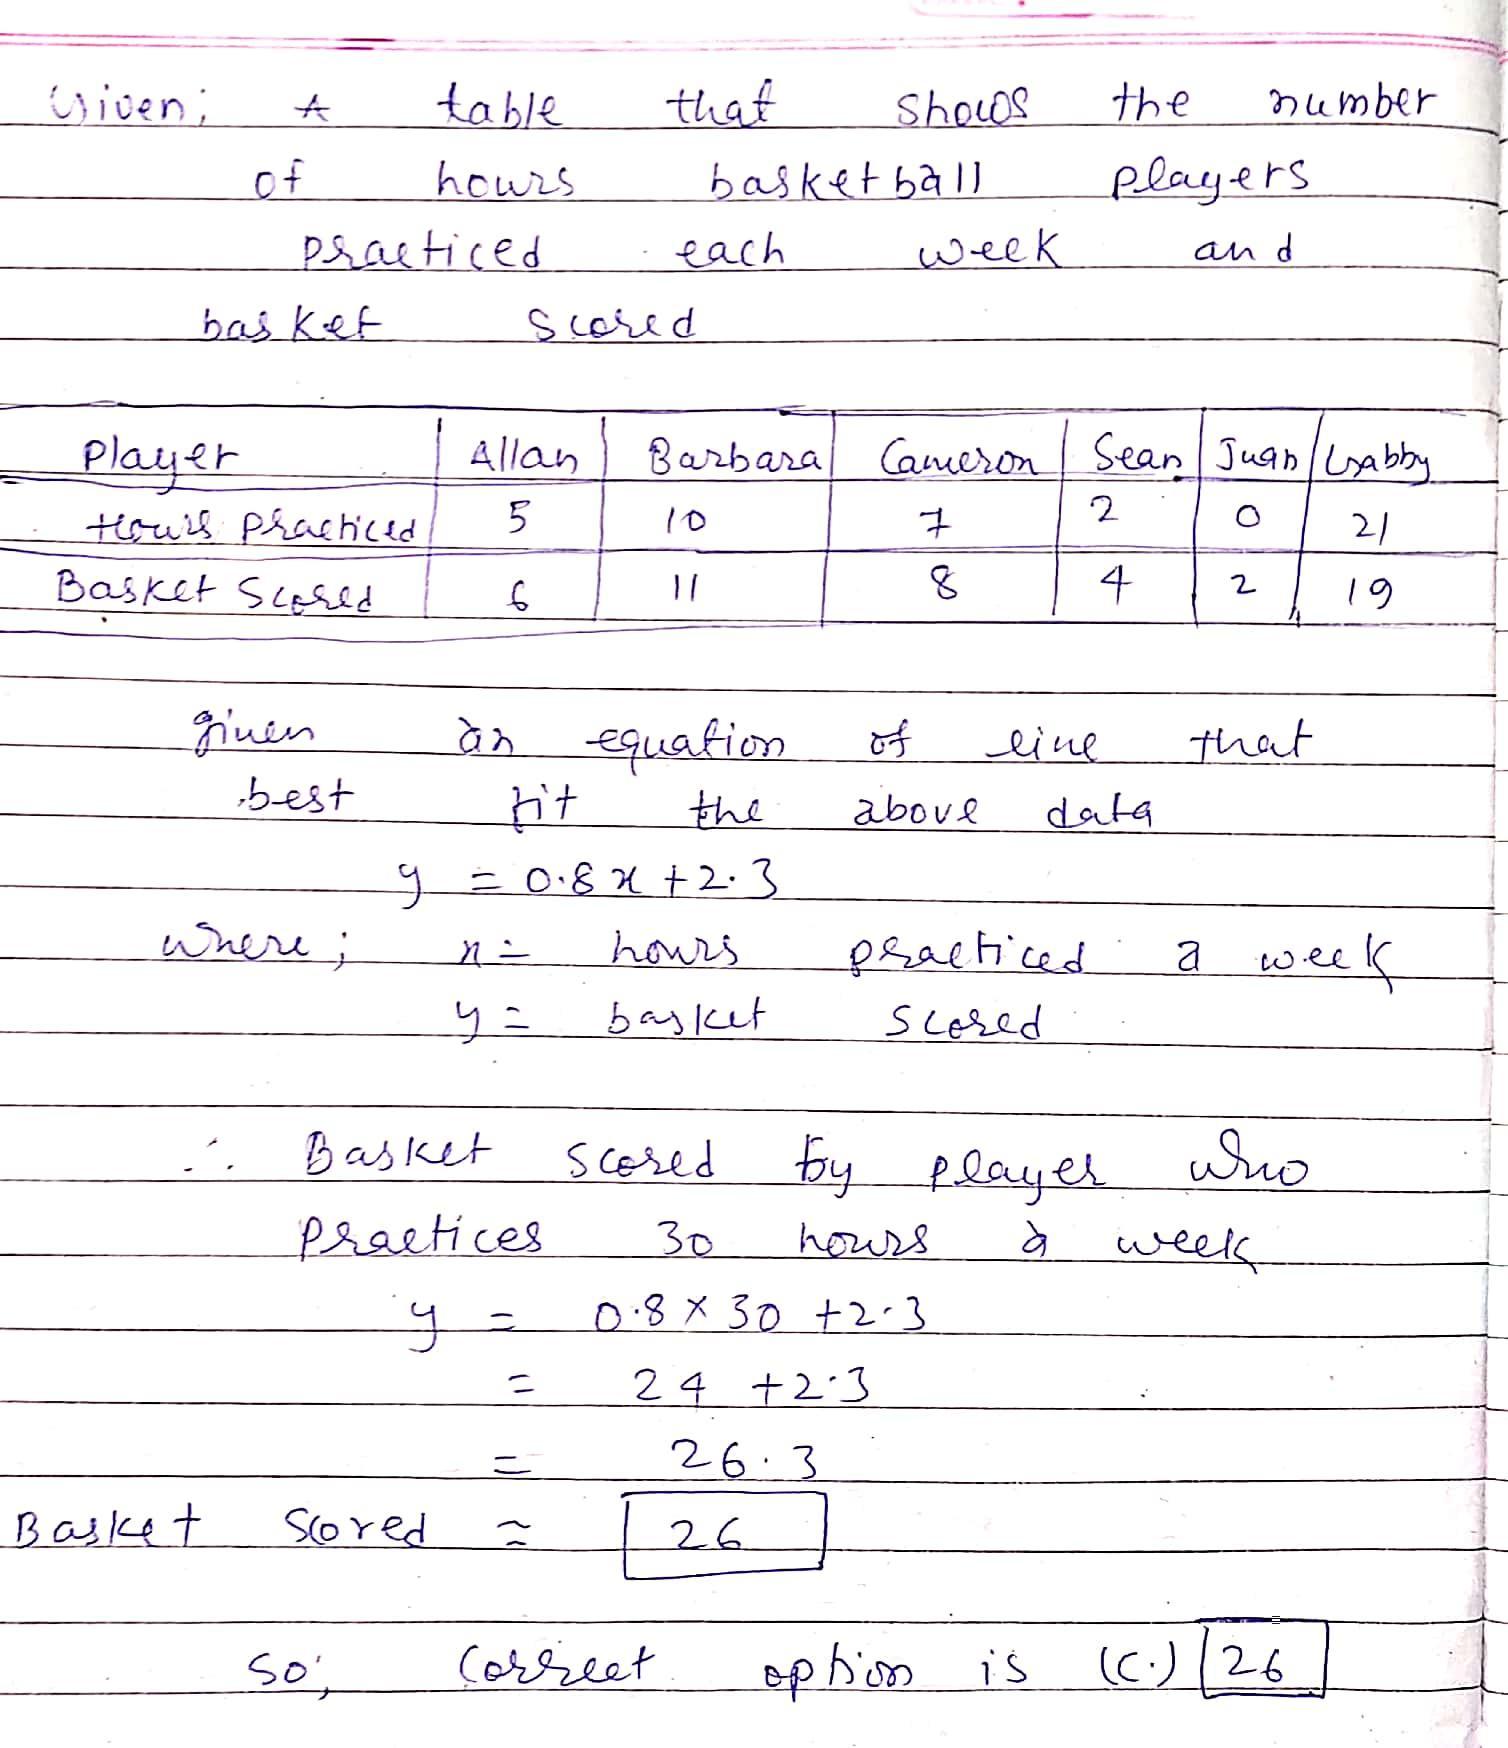 Given; A table that shows the number
of hours basketball players
practiced each week and
basket scored
Player Allan Barbara Cameron Sean Juan Gabby
Hours Practiced 5 10 7 2 0 21
Basket Scored 6 11 8 4 2 19
given an equation of line that
best fit the above data
y = 0.8x + 2.3
where; x = hours practiced a week
y = basket scored
∴ Basket scored by player who
practices 30 hours a week
y = 0.8 × 30 + 2.3
= 24 + 2.3
= 26.3
Basket scored ≈ 26
so; correct option is (C.) 26